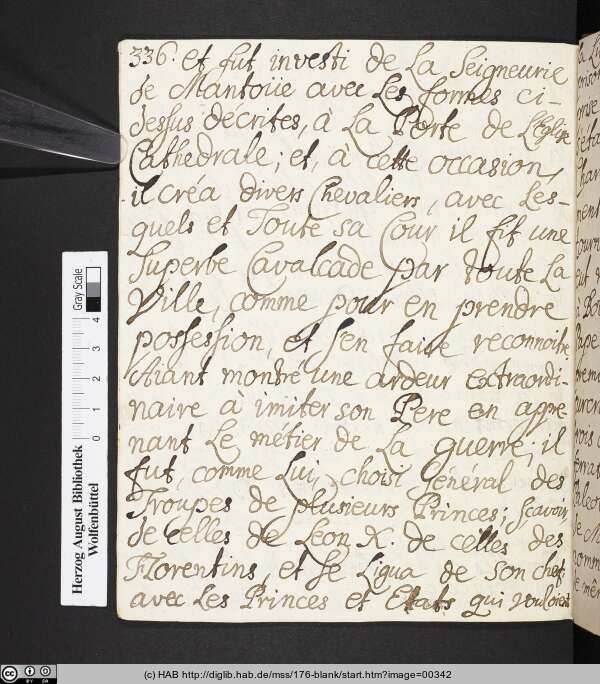 336. et fut investi de La Seigneurie
de Mantoüe avec Les formes ci-
dessus décrites, à La Porte de L'Eglise
Cathedrale; et, à cette occasion,
il créa divers Chevaliers, avec Les-
quels et Toute sa Cour il fit une
Superbe Cavalcade par toute La
Ville, comme pour en prendre
possession, et s'en faire reconnoitre.
Aiant montré une ardeur extraordi-
naire à imiter son Pere en appre-
nant Le métier de La guerre; il
fut, comme Lui, choisi Général des
Troupes de plusieurs Princes; scavoir
de celles de Leon X. de celles des
Florentins, et se Ligua de son chef
avec Les Princes et Etats qui vouloient
Herzog August Bibliothek
Wolfenbüttel
Gray Scale
0 1 2 3 4
cc BY SA
(c) HAB http://diglib.hab.de/mss/176-blank/start.htm?image=00342